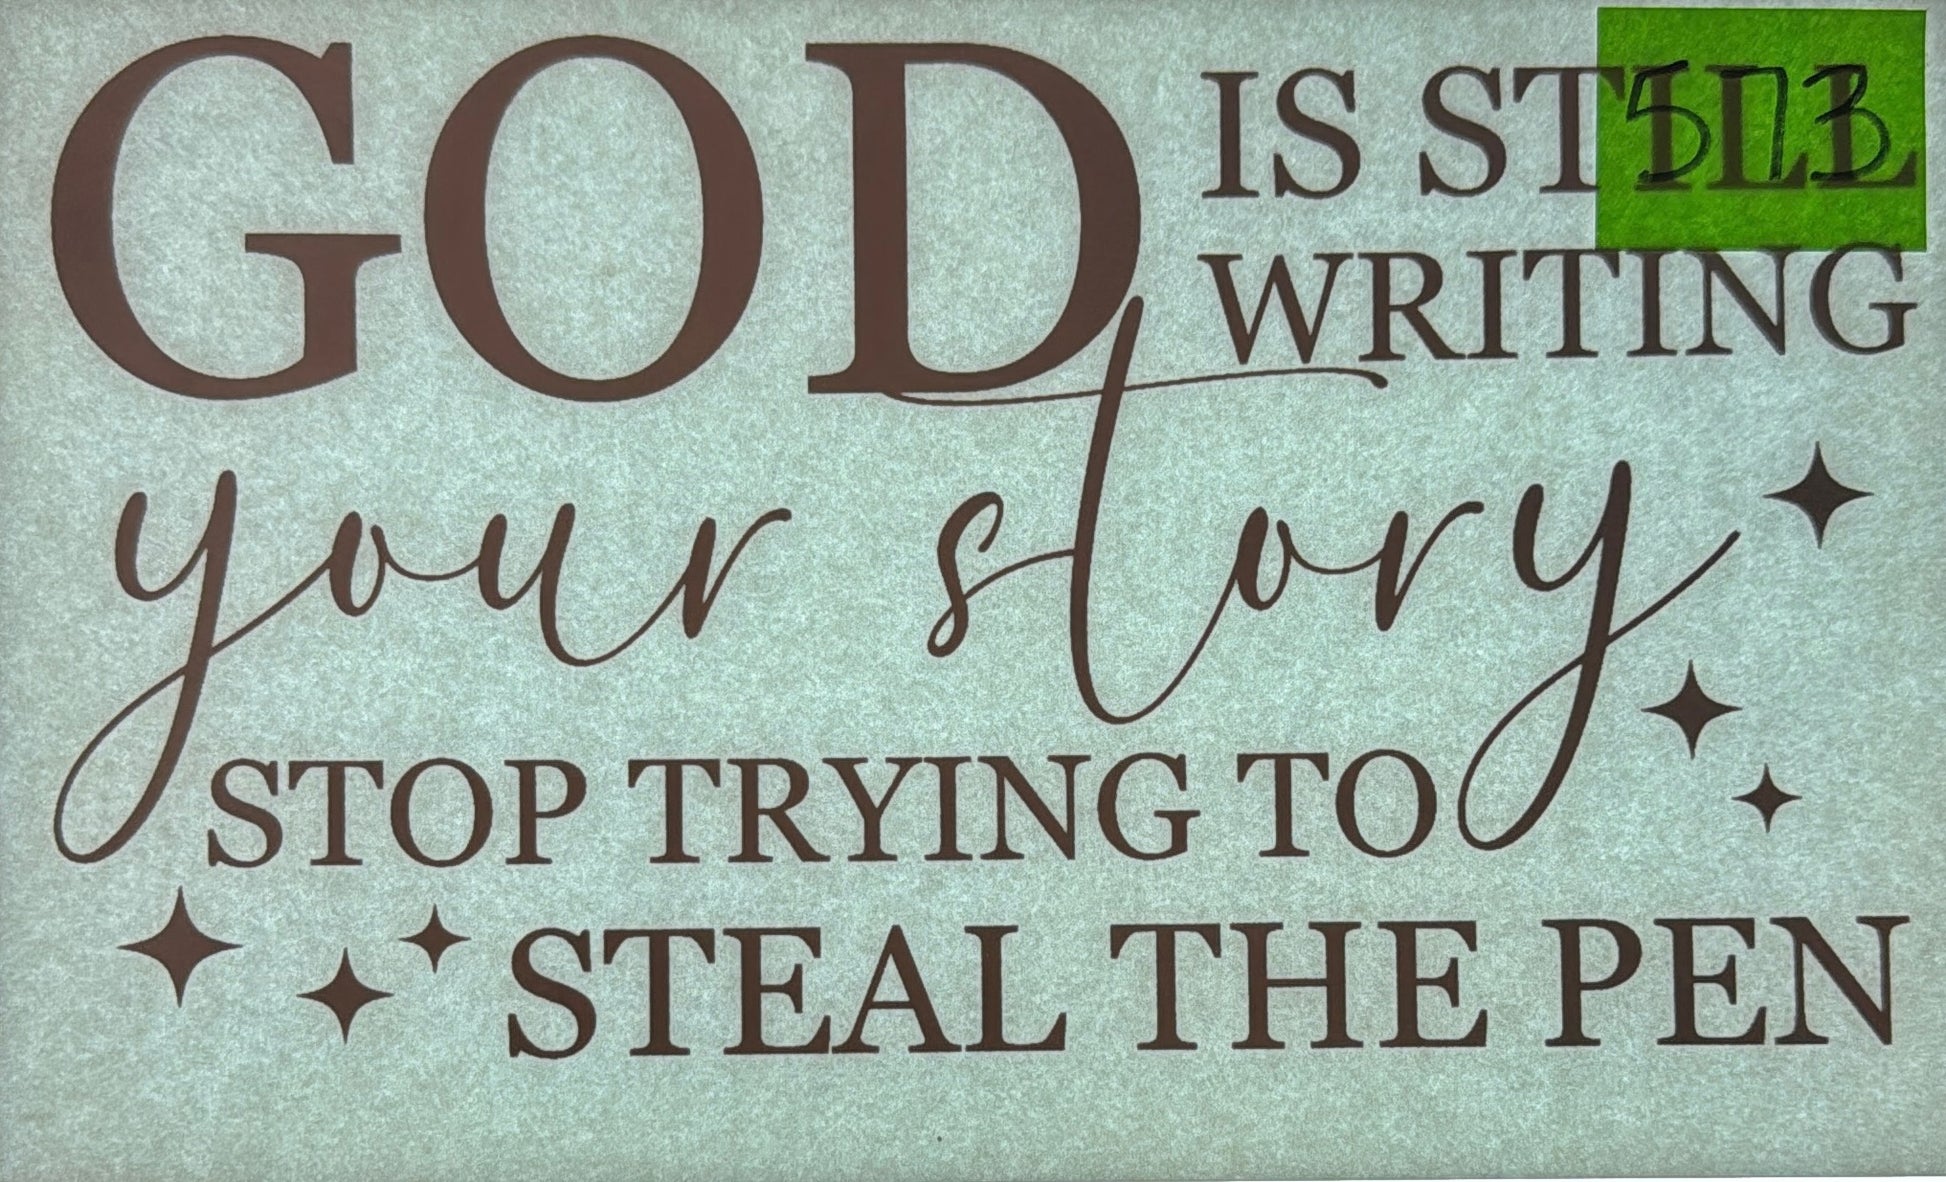 GOD IS STILL
WRITING
your story
STOP TRYING TO
STEAL THE PEN
573